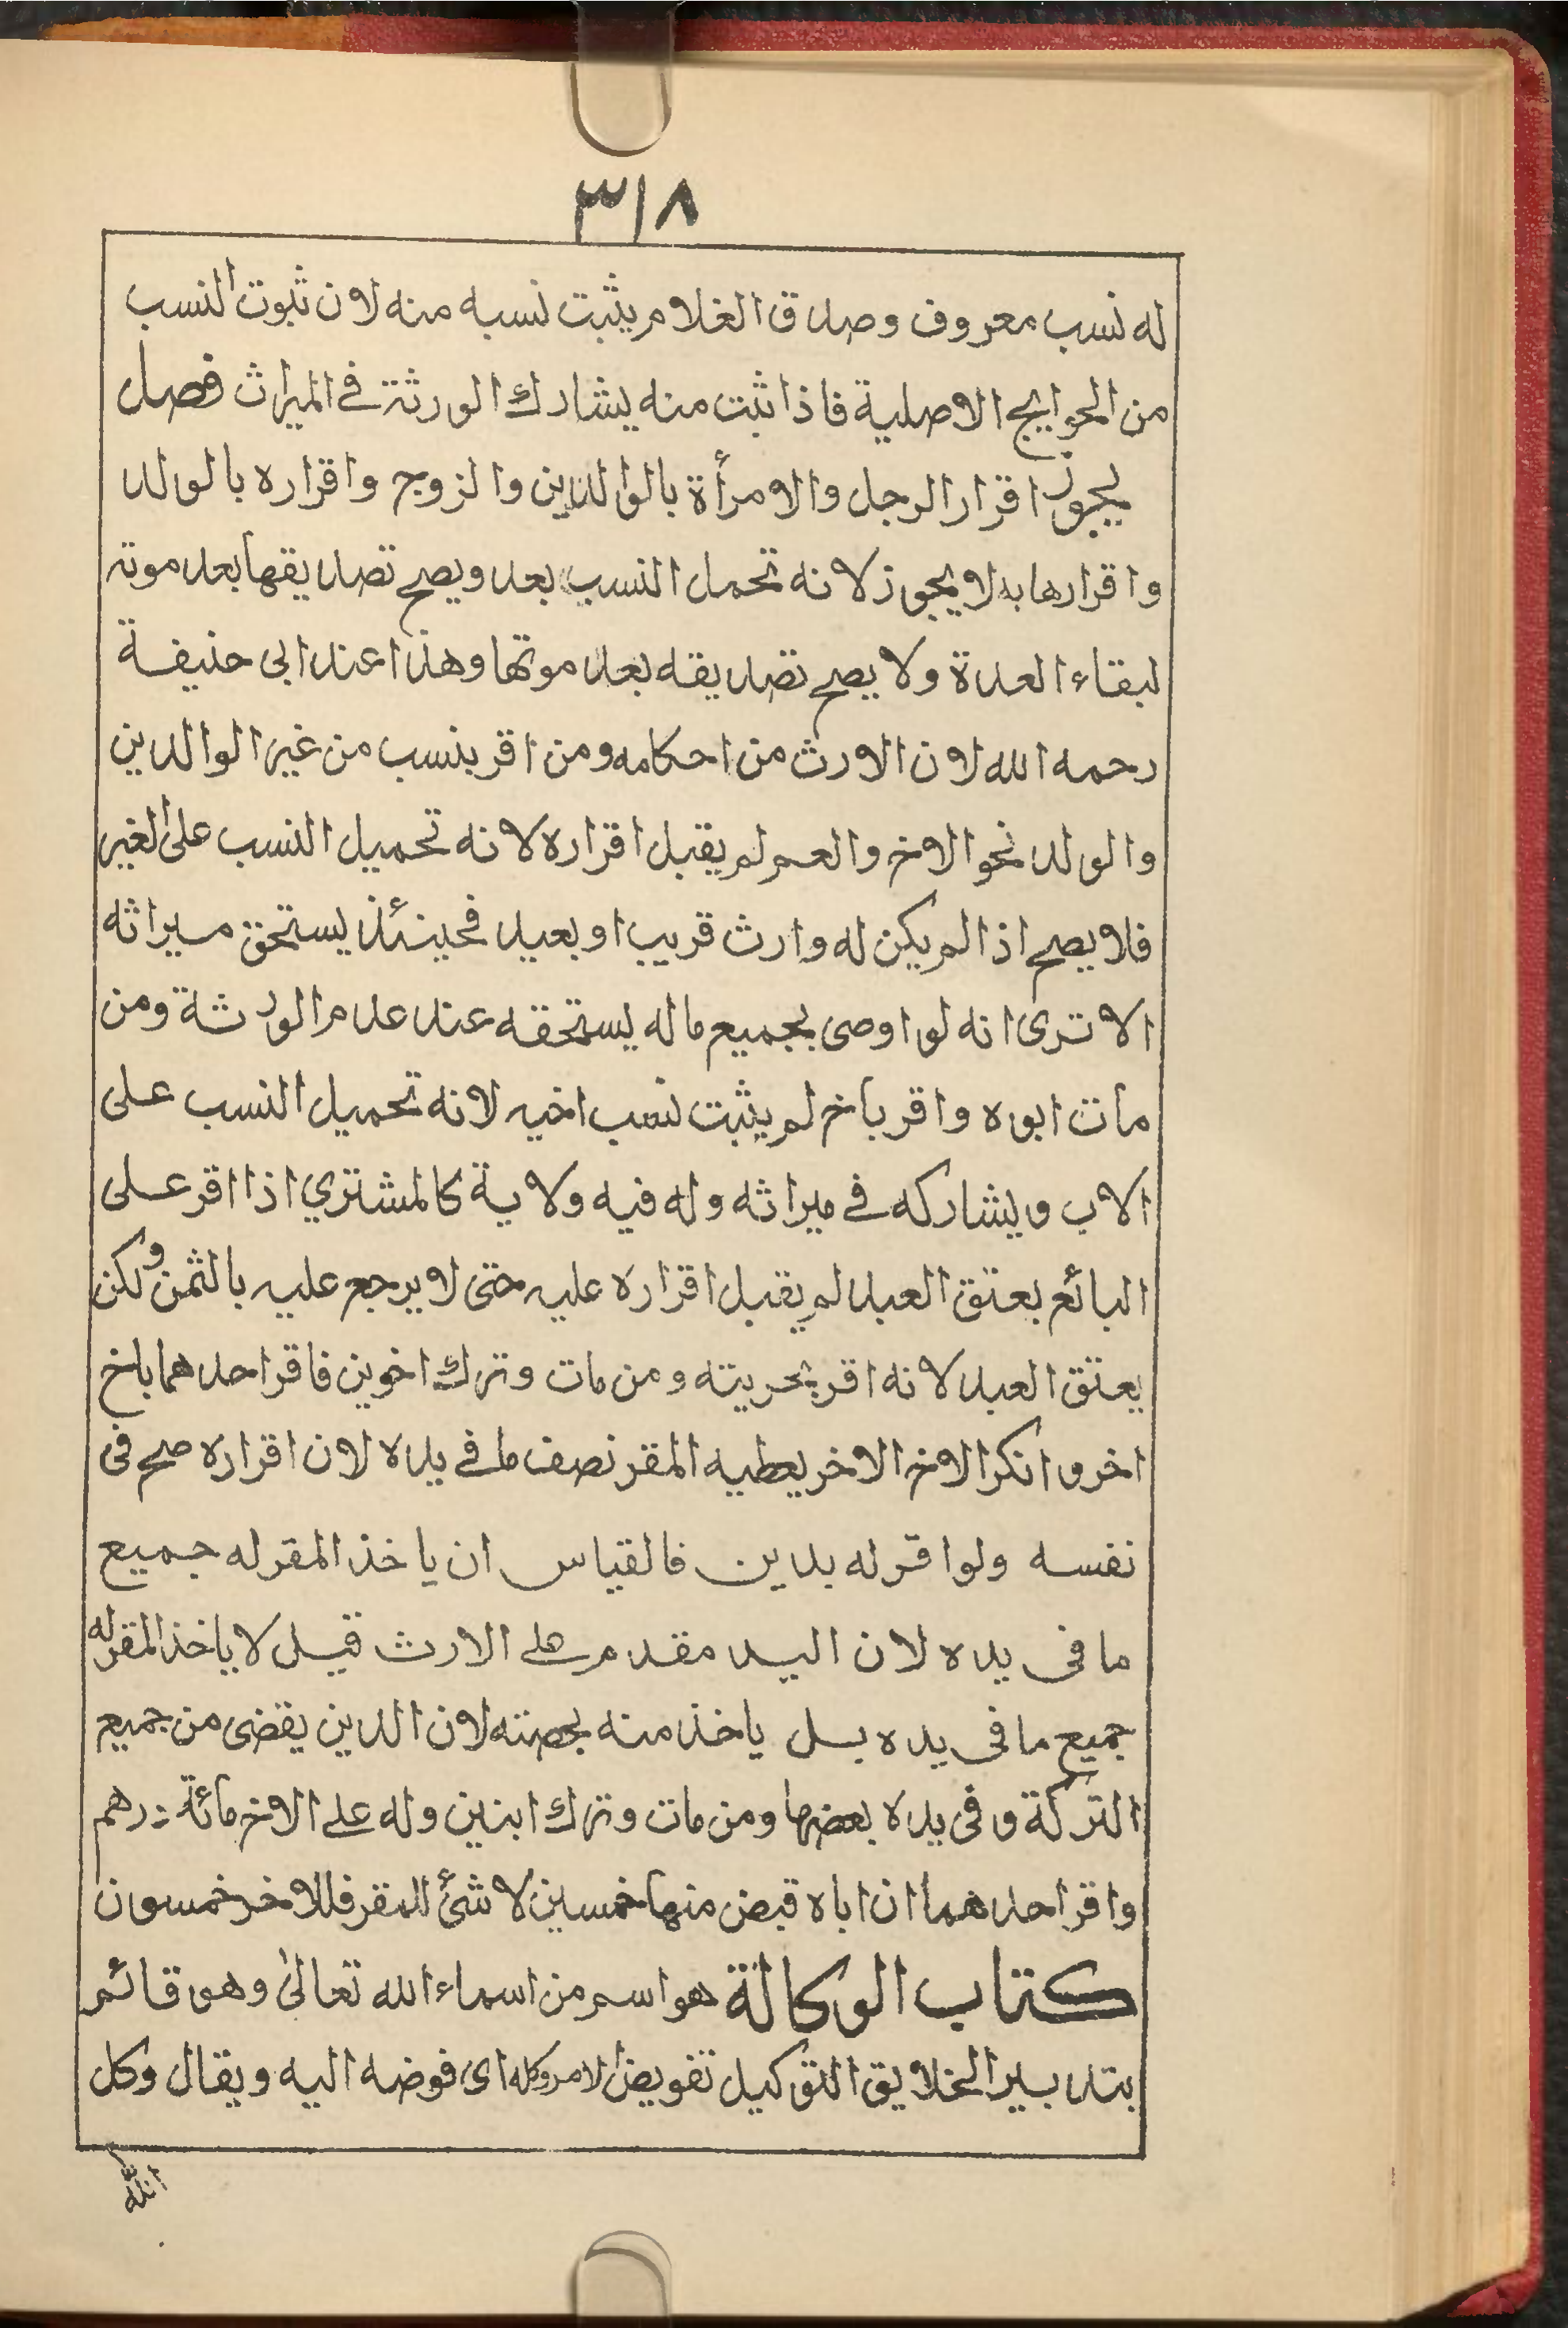 ٣١٨
له نسب معروف وصدق الغلام يثبت نسبه منه لان ثبوت النسب
من الحوايج الاصلية فاذا ثبت منه يشارك الورثة في الميراث فصل
يجوز اقرار الرجل والامرأة بالوالدين والزوج واقراره بالولد
واقرارها به لا يجوز لانه تحمل النسب بعد ويصح تصديقها بعد موته
لبقاء العدة ولا يصح تصديقه بعد موتها وهذا عند ابى حنيفة
رحمه الله لان الارث من احكامه ومن اقر بنسب من غير الوالدين
والولد نحو الاخ والعم لم يقبل اقراره لانه تحميل النسب على الغير
فلا يصح اذا لم يكن له وارث قريب او بعيد فحينئذ يستحق ميراثه
الا ترى انه لو اوصى بجميع ماله يستحقه عند عدم الورثة ومن
مات ابوه واقر باخ لم يثبت نسب اخيه لانه تحميل النسب على
الاب ويشاركه في ميراثه وله فيه ولاية كالمشتري اذا اقر على
البائع بعتق العبد لم يقبل اقراره عليه حتى لا يرجع عليه بالثمن ولكن
يعتق العبد لانه اقر بحريته ومن مات وترك اخوين فاقر احدهما باخ
اخر وانكر الاخ الاخر يعطيه المقر نصف ما في يده لان اقراره صح فى
نفسه ولو اقر له بدين فالقياس ان ياخذ المقر له جميع
ما فى يده لان اليد مقدم على الارث قيل لا ياخذ المقر له
جميع ما فى يده بل ياخذ منه بحصته لان الدين يقضى من جميع
التركة وفى يده بعضها ومن مات وترك ابنين وله على الاخر مائة درهم
واقر احدهما ان اباه قبض منها خمسين لا شئ للمقر فللاخر خمسون
كتاب الوكالة هو اسم من اسماء الله تعالىٰ وهو قائم
بتدبير الخلايق التوكيل تفويض الامر وكله اى فوضه اليه ويقال وكل
الله